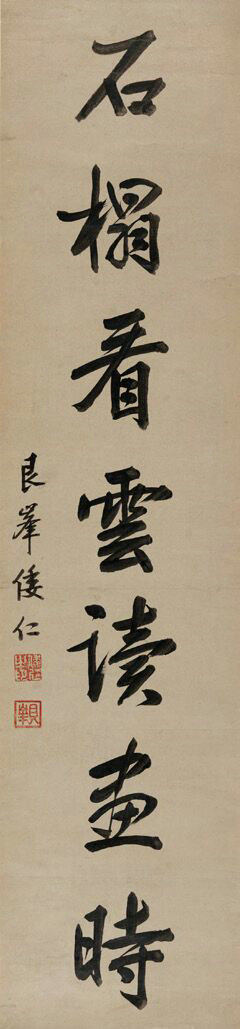 石榻看雲讀畫時
艮峯倭仁